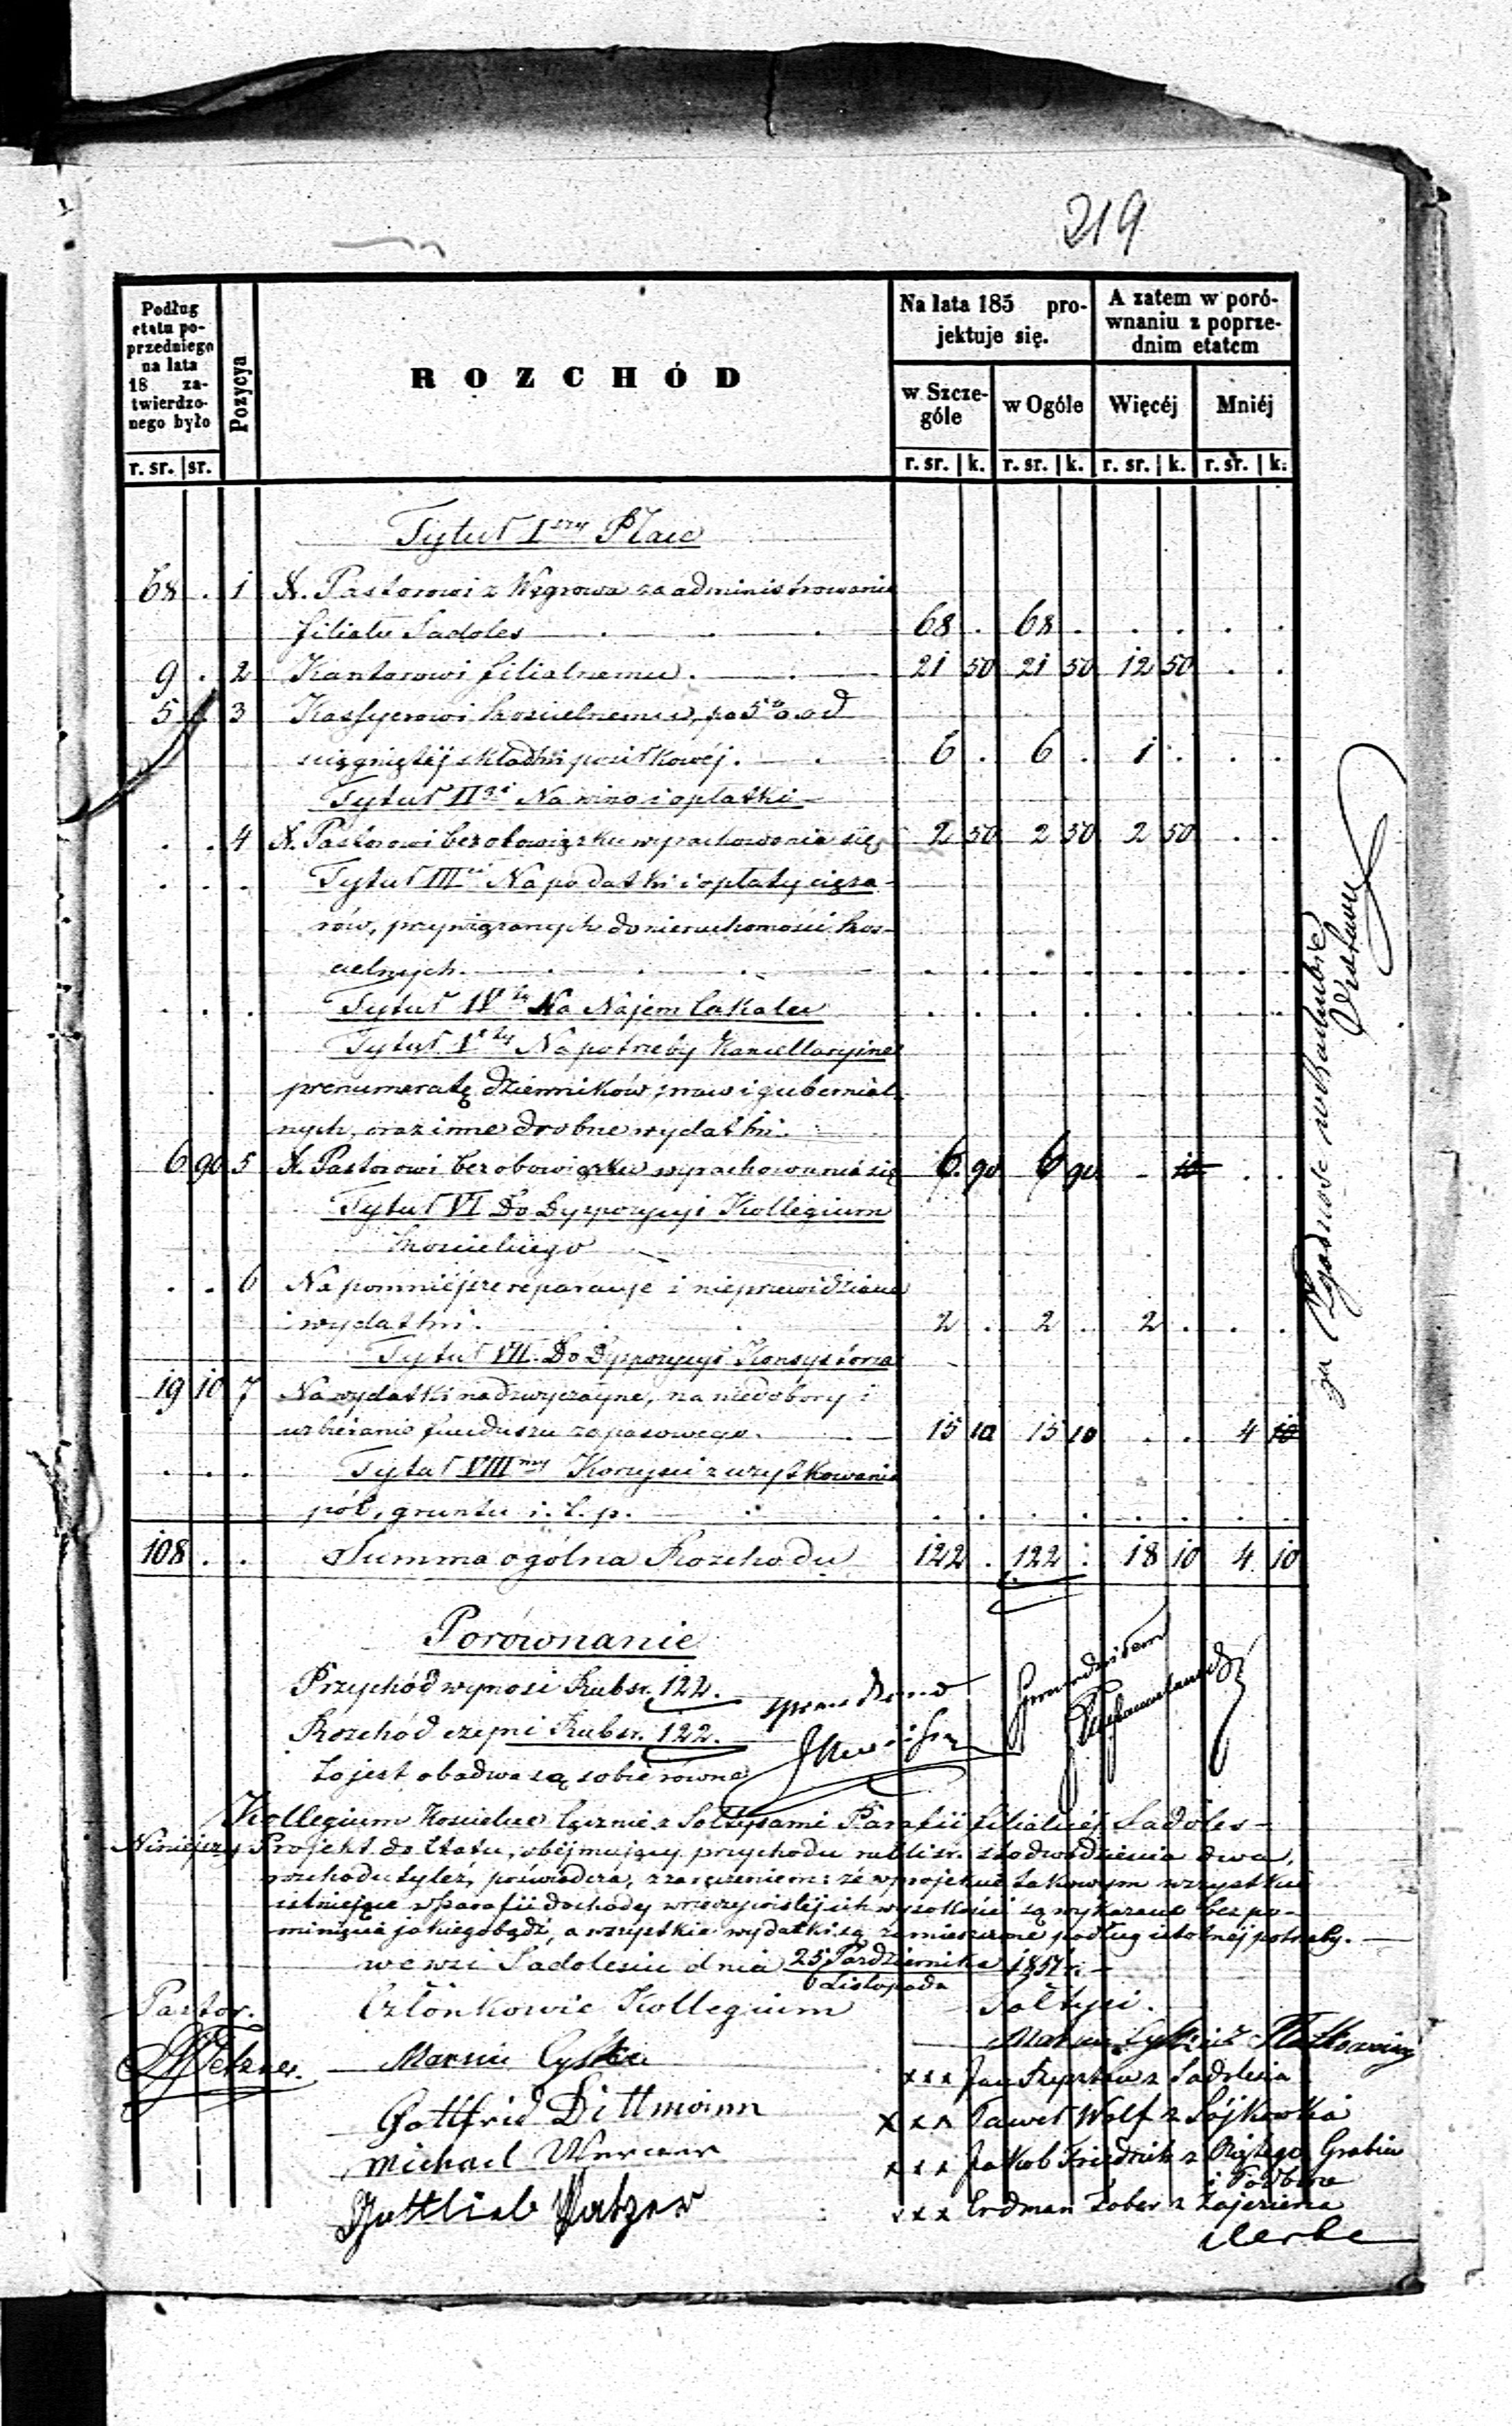 219
Podług etatu poprzedniego na lata 18 zatwierdzonego było
Pozycya
ROZCHÓD
Na lata 185 projektuje się.
A zatem w porównaniu z poprzednim etatem
w Szczególe
w Ogóle
Więcéj
Mniéj
r. sr. | sr. r. sr. | k. r. sr. | k. r. sr. | k. r. sr. | k.
Tytuł I szy Płace
68 . 1 X. Pastorowi z Węgrowa za administrowanie
filiału Sadoles 68 . 68 . . . . .
9 . 2 Kantorowi filialnemu . 21 50 21 50 12 50 . .
5 . 3 Kassyerowi kościelnemu, po 5% od
sciągniętéj składki posiłkowéj. 6 . 6 . 1 . . .
Tytuł II gi Na wino i opłatki
. . 4 X. Pastorowi bez obowiązku wyrachowania się 2 50 2 50 2 50 . .
. . . Tytuł III ci Na podatki i opłaty cięża-
rów, przywiązanych do nieruchomości koś-
cielnych. . . . . . . . .
. . . Tytuł IV ty Na Najem Lokalu . . . . . . . .
Tytuł V ty Na potrzeby Kancellaryine
prenumeratę dzienników praw i gubernial-
nych, oraz inne drobne wydatki.
6 90 5 X. Pastorowi bez obowiązku wyrachowania się 6. 90 6 90 . 10 . .
Tytuł VI Do Dyspozycyi Kollegium
kościelnego
. . 6 Na pomniejsze reparacye i nieprzewidziane
wydatki. 2 . 2 . 2 . . .
Tytuł VII. Do Dyspozycyi Konsystorza
19 10 7 Na wydatki nadzwyczayne, na niedobory i
uzbieranie funduszu zapasowego. 15 10 15 10 . . 4 10
. . . Tytuł VIII my Korzyści z użytkowania
pól, gruntu i. t. p. . . . . . . . .
108 . . Summa ogólna Rozchodu 122 . 122 . 18 10 4 10
Porównanie
Przychód wynosi Rubsr. 122.
Rozchód czyni Rubsr. 122.
to jest obadwa są sobie równe
Sprawdzono
Sprawdziłem
Kollegium Kościelne łącznie z Sołtysami Parafii filialnéj Sadoles
Niniejszy Projekt do Etatu, obéjmujący przychodu rubli sr. sto dwadzieścia dwa,
rozchodu tyleż, poświadcza, z zaręczeniem: że w projekcie takowym wszystkie
istniejące w Parafii dochody w rzeczywistéj ich wysokości są wykazane bez po-
minięcia jakiegobądź, a wszystkie wydatki są zamieszczone podług istotnéj potrzeby.
we wsi Sadolesiu dnia 25 Października 1851 r.
6 Listopada
Pastor. Członkowie Kollegium Sołtysi.
Marcin Cyske
xxx Jan z Sadolesia
Gottfried Dittmann xxx Paweł Wolf z Sójkówka
Michael Werner xxx Jakob Friedrich z Grabin
i Podbore
Gottlieb Patzer xxx Erdman Zober z Zajezierza
za Zgodność